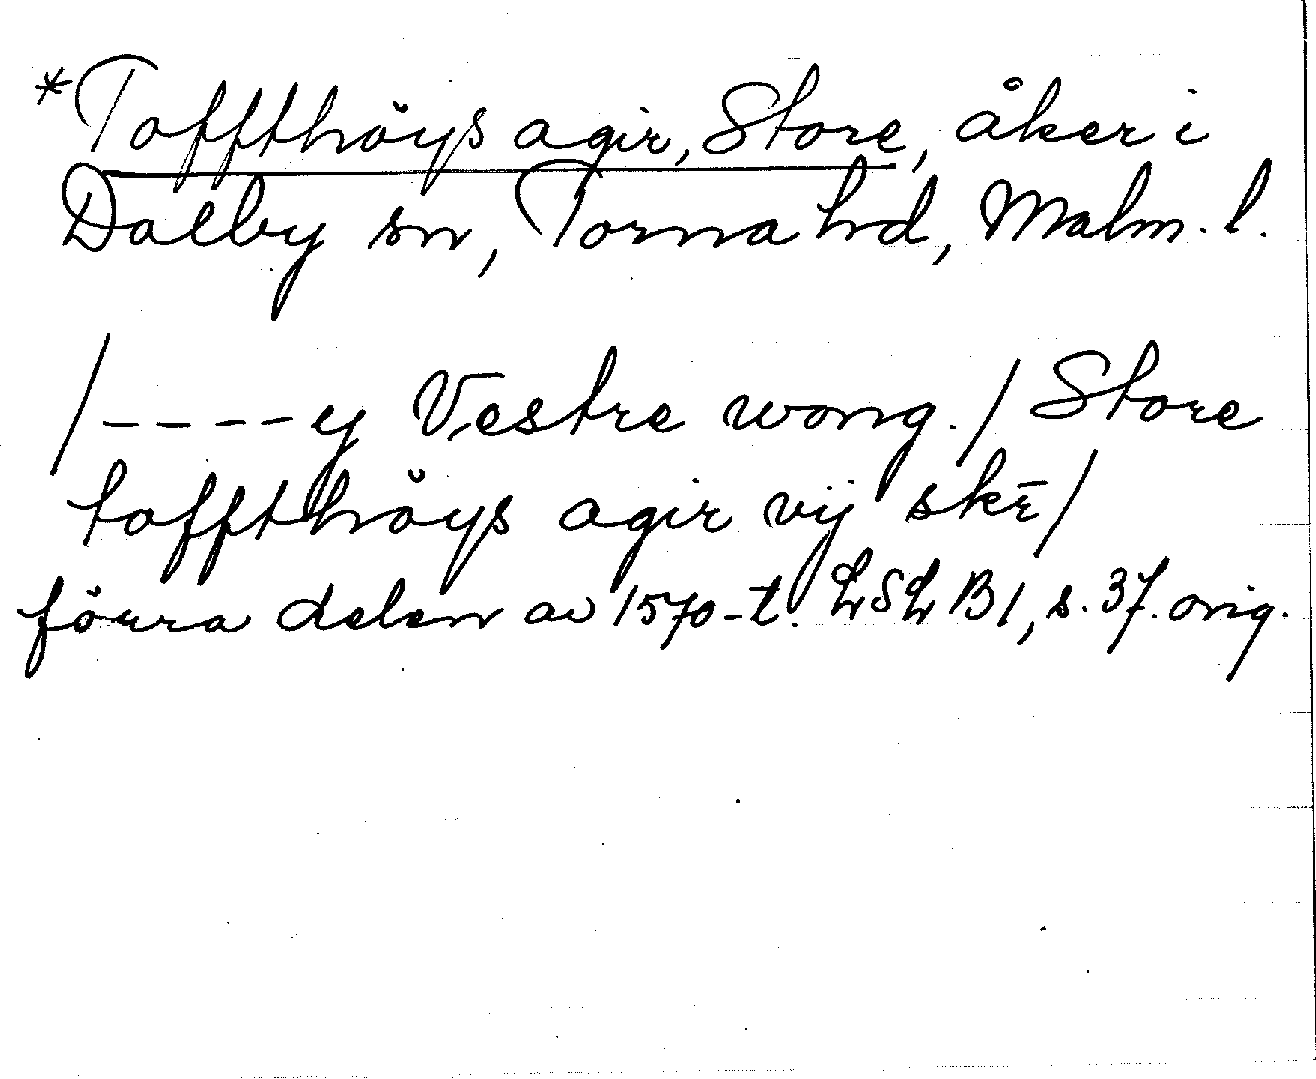 *Toffthöÿs agir, Store, åker i
Dalby sn, Torna hd, Malm. l.
/----ey Vestre wong./ Store
toffthöÿs agir vij skē/
förra delen av 1570-t. LSL B1, s. 37. orig.